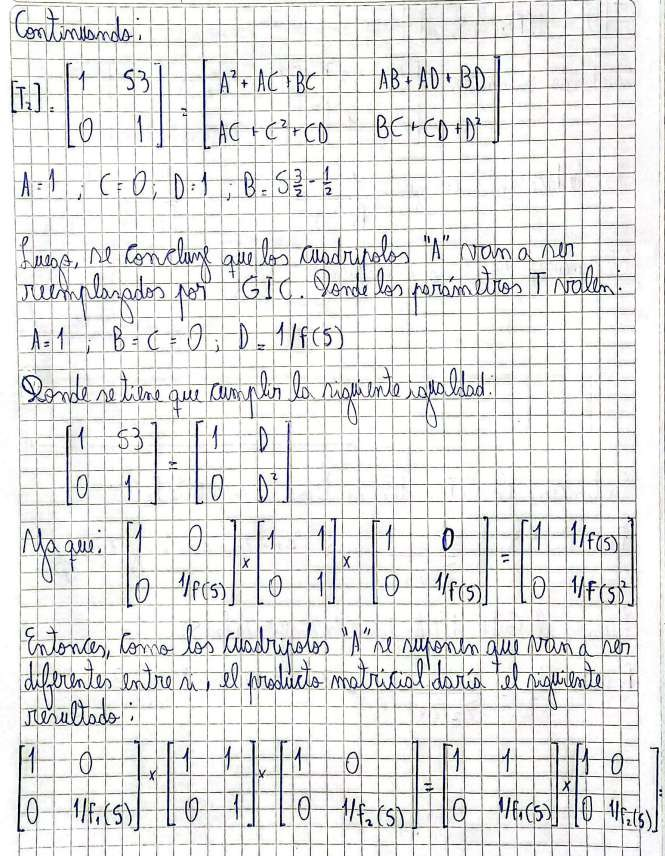 Continuando:
[T₂] = [1 S3; 0 1] = [A² + AC + BC AB + AD + BD; AC + C² + CD BC + CD + D²]
A = 1 ; C = 0 ; D = 1 ; B = S 3/2 - 1/2
Luego, se concluye que los cuadripolos "A" van a ser
reemplazados por GIC. Donde los parámetros T valen:
A = 1 ; B = C = 0 ; D = 1/f(S)
Donde se tiene que cumplir la siguiente igualdad:
[1 S3; 0 1] = [1 D; 0 D²]
Ya que: [1 0; 0 1/f(S)] × [1 1; 0 1] × [1 0; 0 1/f(S)] = [1 1/f(S); 0 1/f(S)²]
Entonces, como los cuadripolos "A" se suponen que van a ser
diferentes entre si, el producto matricial daría el siguiente
resultado:
[1 0; 0 1/f₁(S)] × [1 1; 0 1] × [1 0; 0 1/f₂(S)] = [1 1; 0 1/f₁(S)] × [1 0; 0 1/f₂(S)] =